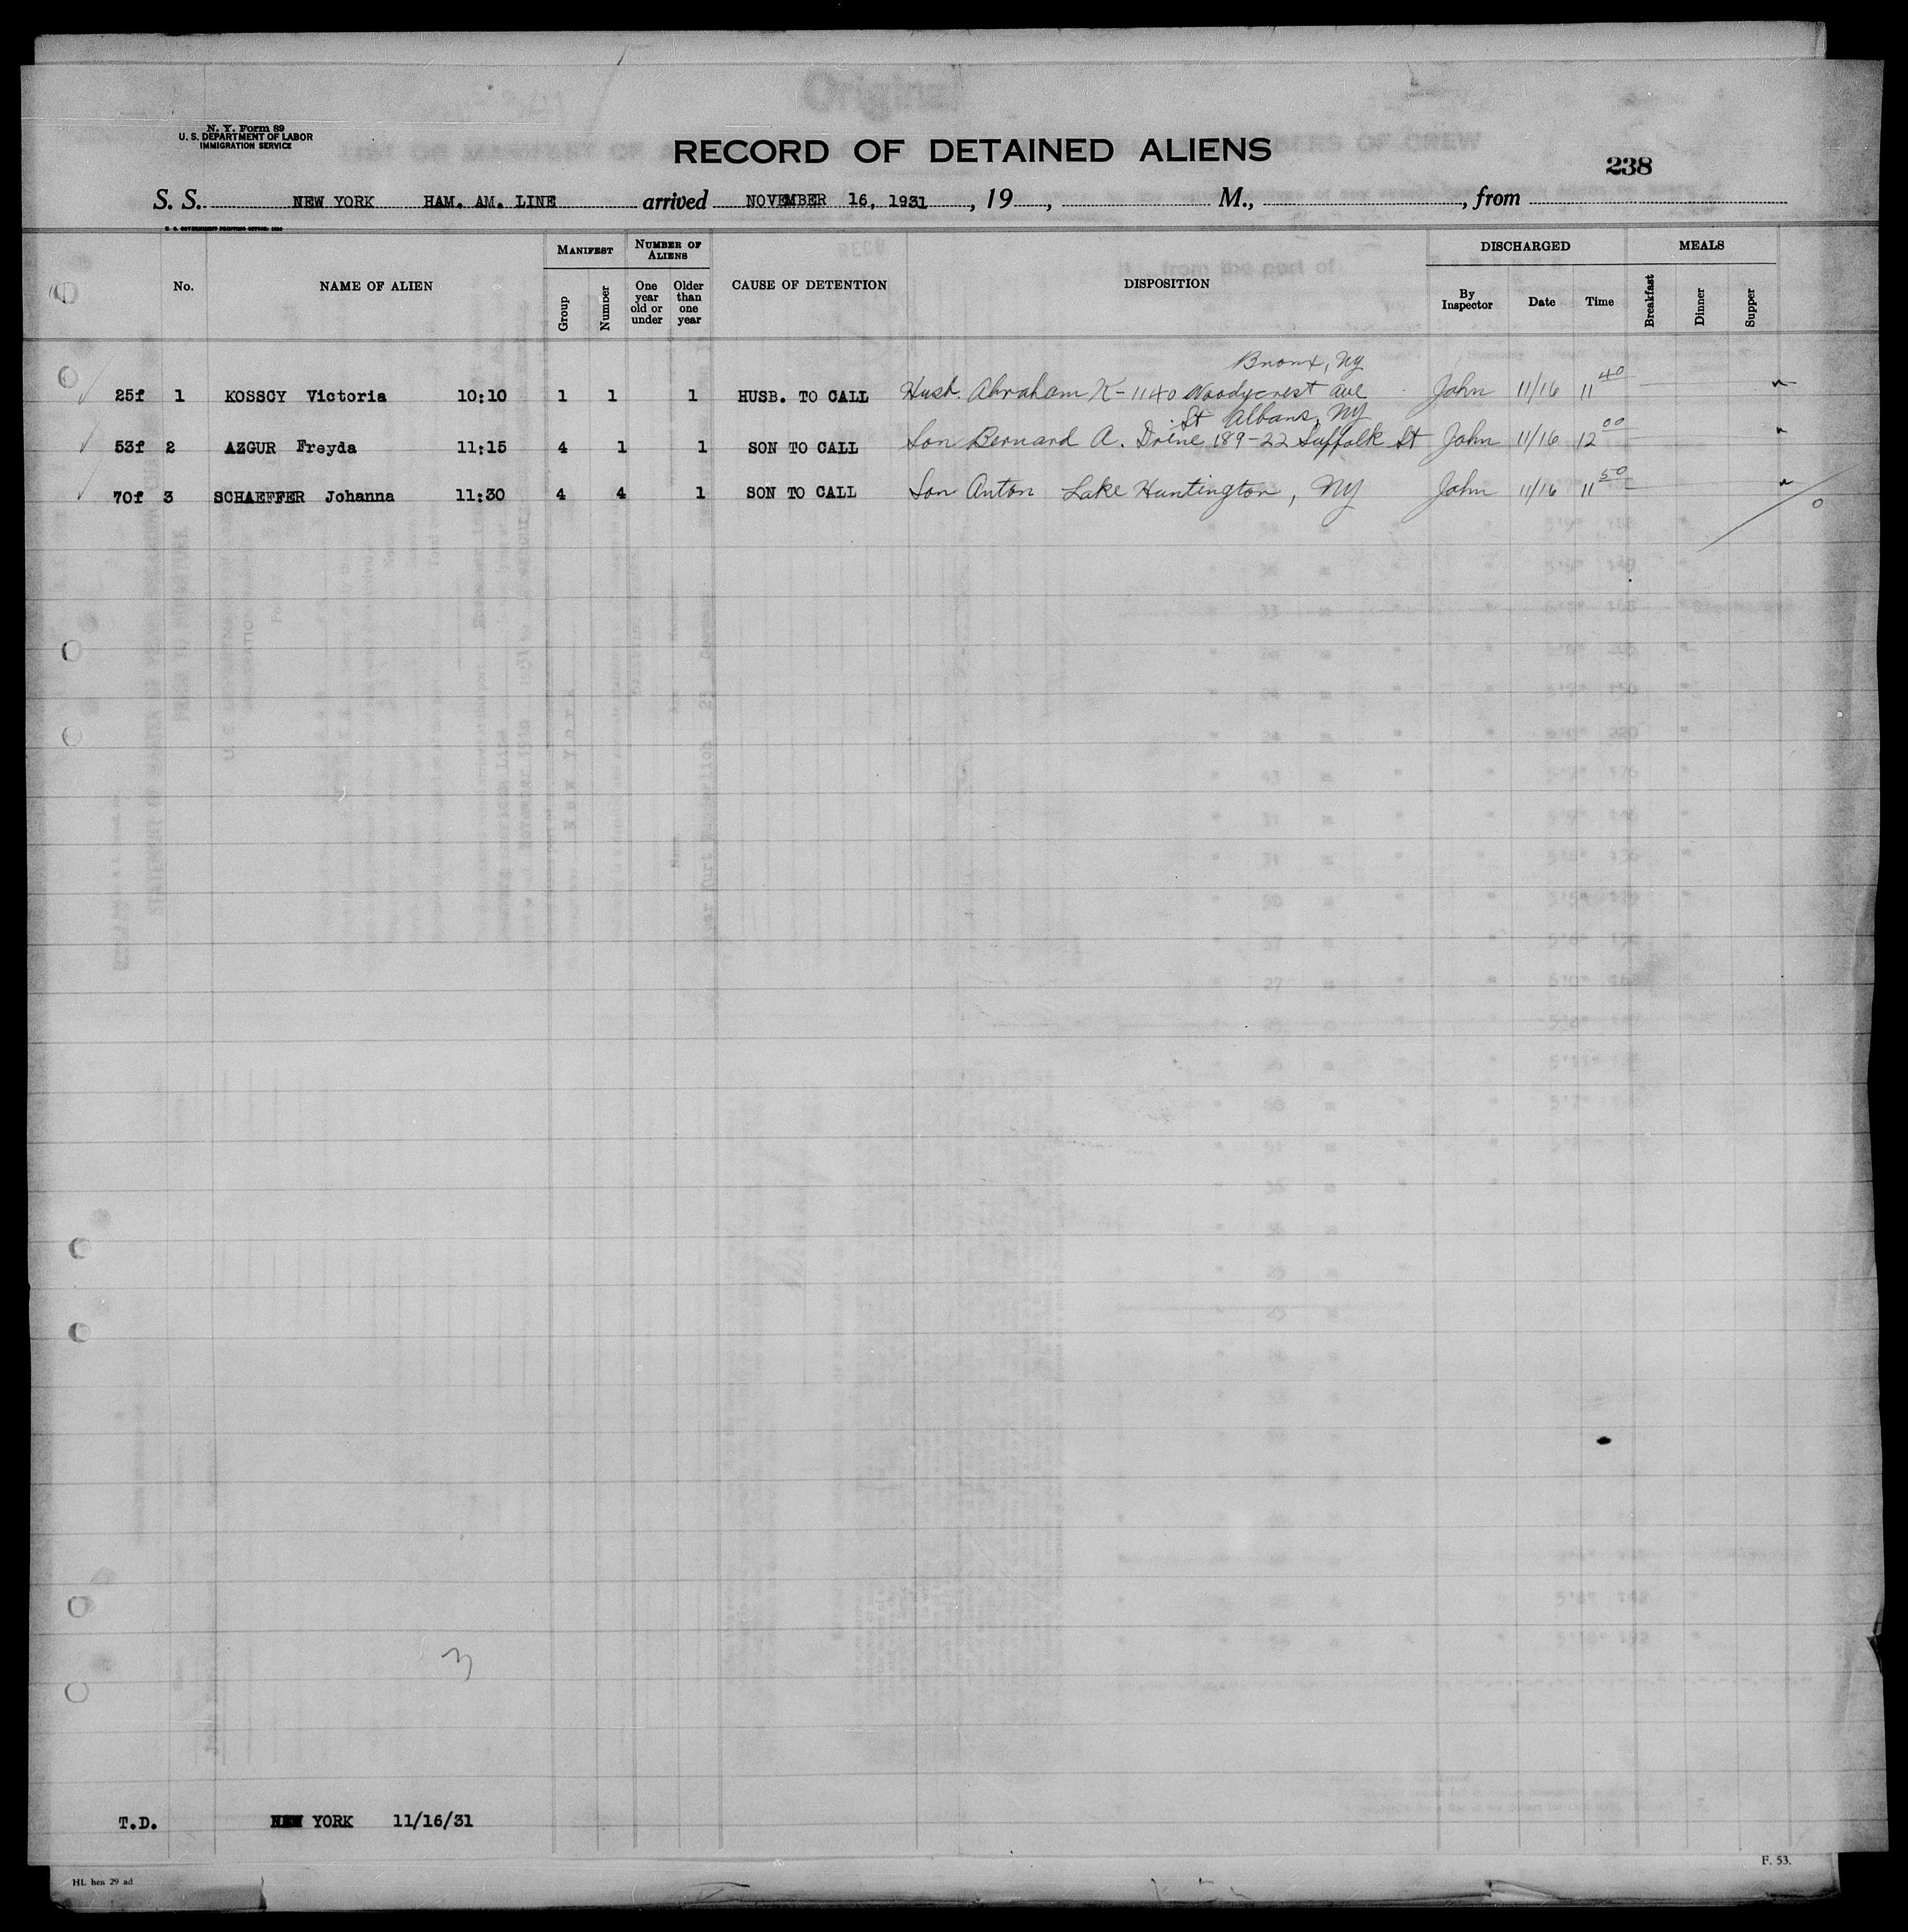 N. Y. Form 89
U. S. DEPARTMENT OF LABOR
IMMIGRATION SERVICE
RECORD OF DETAINED ALIENS
238
S. S. NEW YORK HAM. AM. LINE arrived NOVEMBER 16, 1931, 19, M., , from
U. S. GOVERNMENT PRINTING OFFICE:
MANIFEST NUMBER OF ALIENS DISCHARGED MEALS
No. NAME OF ALIEN Group Number One year old or under Older than one year CAUSE OF DETENTION DISPOSITION By Inspector Date Time Breakfast Dinner Supper
Bronx, NY
25f 1 KOSSCY Victoria 10:10 1 1 1 HUSB. TO CALL Husb. Abraham K-1140 Woodycrest ave John 11/16 11 40
St Albans, NY
53f 2 AZGUR Freyda 11:15 4 1 1 SON TO CALL Son Bernard A. 189-22 Suffolk St John 11/16 12 00
70f 3 SCHAEFFER Johanna 11:30 4 4 1 SON TO CALL Son Anton Lake Huntington, NY John 11/16 11 50
0
3
T.D. NEW YORK 11/16/31
F. 53.
HL hea 29 ad